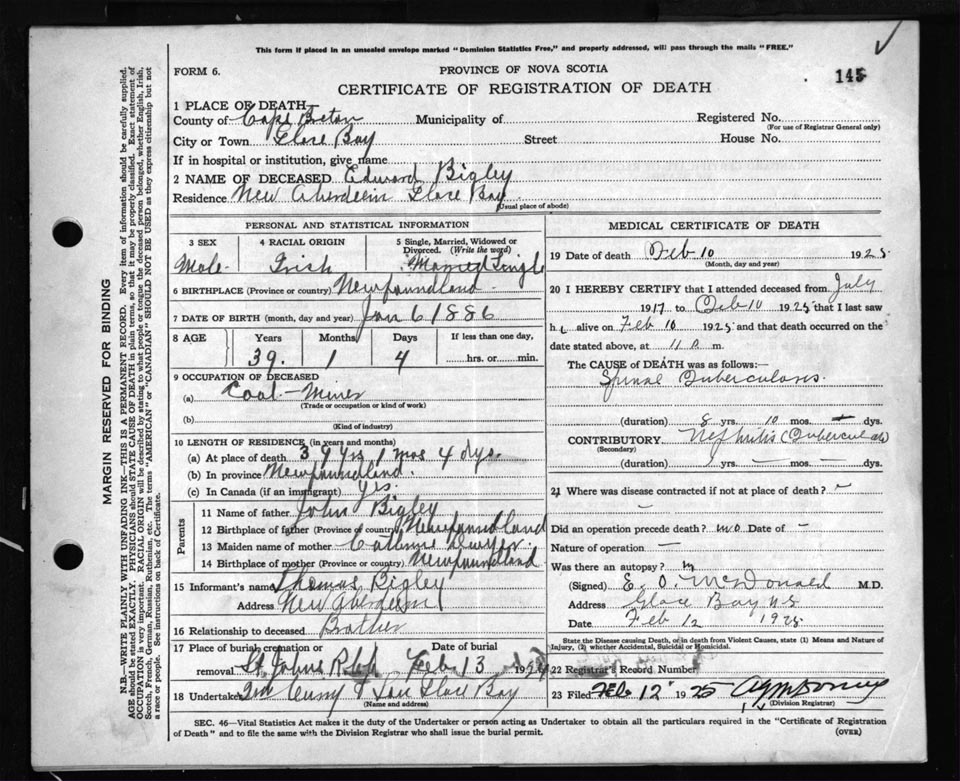 This form if placed in an unsealed envelope marked "Dominion Statistics Free," and properly addressed, will pass through the mails "FREE."
FORM 6.
PROVINCE OF NOVA SCOTIA
145
CERTIFICATE OF REGISTRATION OF DEATH
MARGIN RESERVED FOR BINDING
N.B.—WRITE PLAINLY WITH UNFADING INK—THIS IS A PERMANENT RECORD. Every item of information should be carefully supplied.
AGE should be stated EXACTLY. PHYSICIANS should STATE CAUSE OF DEATH in plain terms, so that it may be properly classified. Exact statement of
OCCUPATION is very important. RACIAL ORIGIN will be described by stating to what people or tongue the deceased person belonged, whether English, Irish,
Scotch, French, German, Russian, Ruthenian, etc. The terms "AMERICAN" or "CANADIAN" SHOULD NOT BE USED as they express citizenship but not
a race or people. See instructions on back of Certificate.
1 PLACE OF DEATH—
County of Cape Breton Municipality of Registered No.
(For use of Registrar General only)
City or Town Glace Bay Street House No.
If in hospital or institution, give name
2 NAME OF DECEASED Edward Bigley
Residence New Aberdeen Glace Bay
(Usual place of abode)
PERSONAL AND STATISTICAL INFORMATION
3 SEX 4 RACIAL ORIGIN 5 Single, Married, Widowed or Divorced. (Write the word)
Male Irish Married Single
6 BIRTHPLACE (Province or country) Newfoundland
7 DATE OF BIRTH (month, day and year) Jan 6 1886
8 AGE Years Months Days If less than one day,
39. 1 4 hrs. or min.
9 OCCUPATION OF DECEASED
(a) Coal-Miner
(Trade or occupation or kind of work)
(b)
(Kind of industry)
10 LENGTH OF RESIDENCE (in years and months)
(a) At place of death 39 yrs 1 mos 4 dys.
(b) In province Newfoundland.
(c) In Canada (if an immigrant) Yes.
Parents
11 Name of father John Bigley
12 Birthplace of father (Province or country) Newfoundland
13 Maiden name of mother Catherine Dwyer
14 Birthplace of mother (Province or country) Newfoundland
15 Informant's name Thomas Bigley
Address New Aberdeen
16 Relationship to deceased Brother
17 Place of burial, cremation or Date of burial
removal St Johns Feb 13 192
18 Undertaker Glace Bay
(Name and address)
MEDICAL CERTIFICATE OF DEATH
19 Date of death Feb 10 1925
(Month, day and year)
20 I HEREBY CERTIFY that I attended deceased from July
1917 to Feb 10 1925 that I last saw
h alive on Feb 10 1925 and that death occurred on the
date stated above, at 11 P. m.
The CAUSE of DEATH was as follows:—
Spinal Tuberculosis.
(duration) 8 yrs. 10 mos. — dys.
CONTRIBUTORY Nephritis (Tubercular)
(Secondary)
(duration) yrs. — mos. — dys.
21 Where was disease contracted if not at place of death? —
Did an operation precede death? no Date of —
Nature of operation —
Was there an autopsy? n
(Signed) E. O. McDonald M.D.
Address Glace Bay N S
Date Feb 12 1925
State the Disease causing Death, or in death from Violent Causes, state (1) Means and Nature of
Injury, (2) whether Accidental, Suicidal or Homicidal.
22 Registrar's Record Number
23 Filed Feb 12 1925
(Division Registrar)
SEC. 46—Vital Statistics Act makes it the duty of the Undertaker or person acting as Undertaker to obtain all the particulars required in the "Certificate of Registration
of Death" and to file the same with the Division Registrar who shall issue the burial permit.
(OVER)